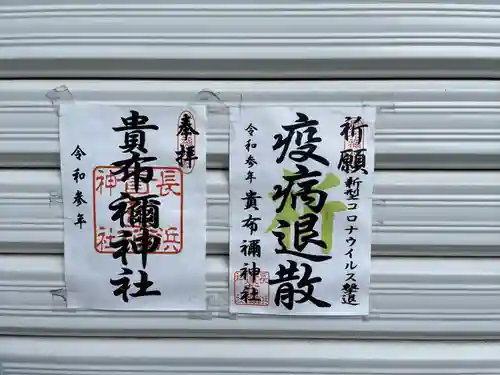 祈願
新型コロナウイルス撃退
疫病退散
令和参年
貴布禰神社
奉拝
貴布禰神社
令和参年
長浜
神社